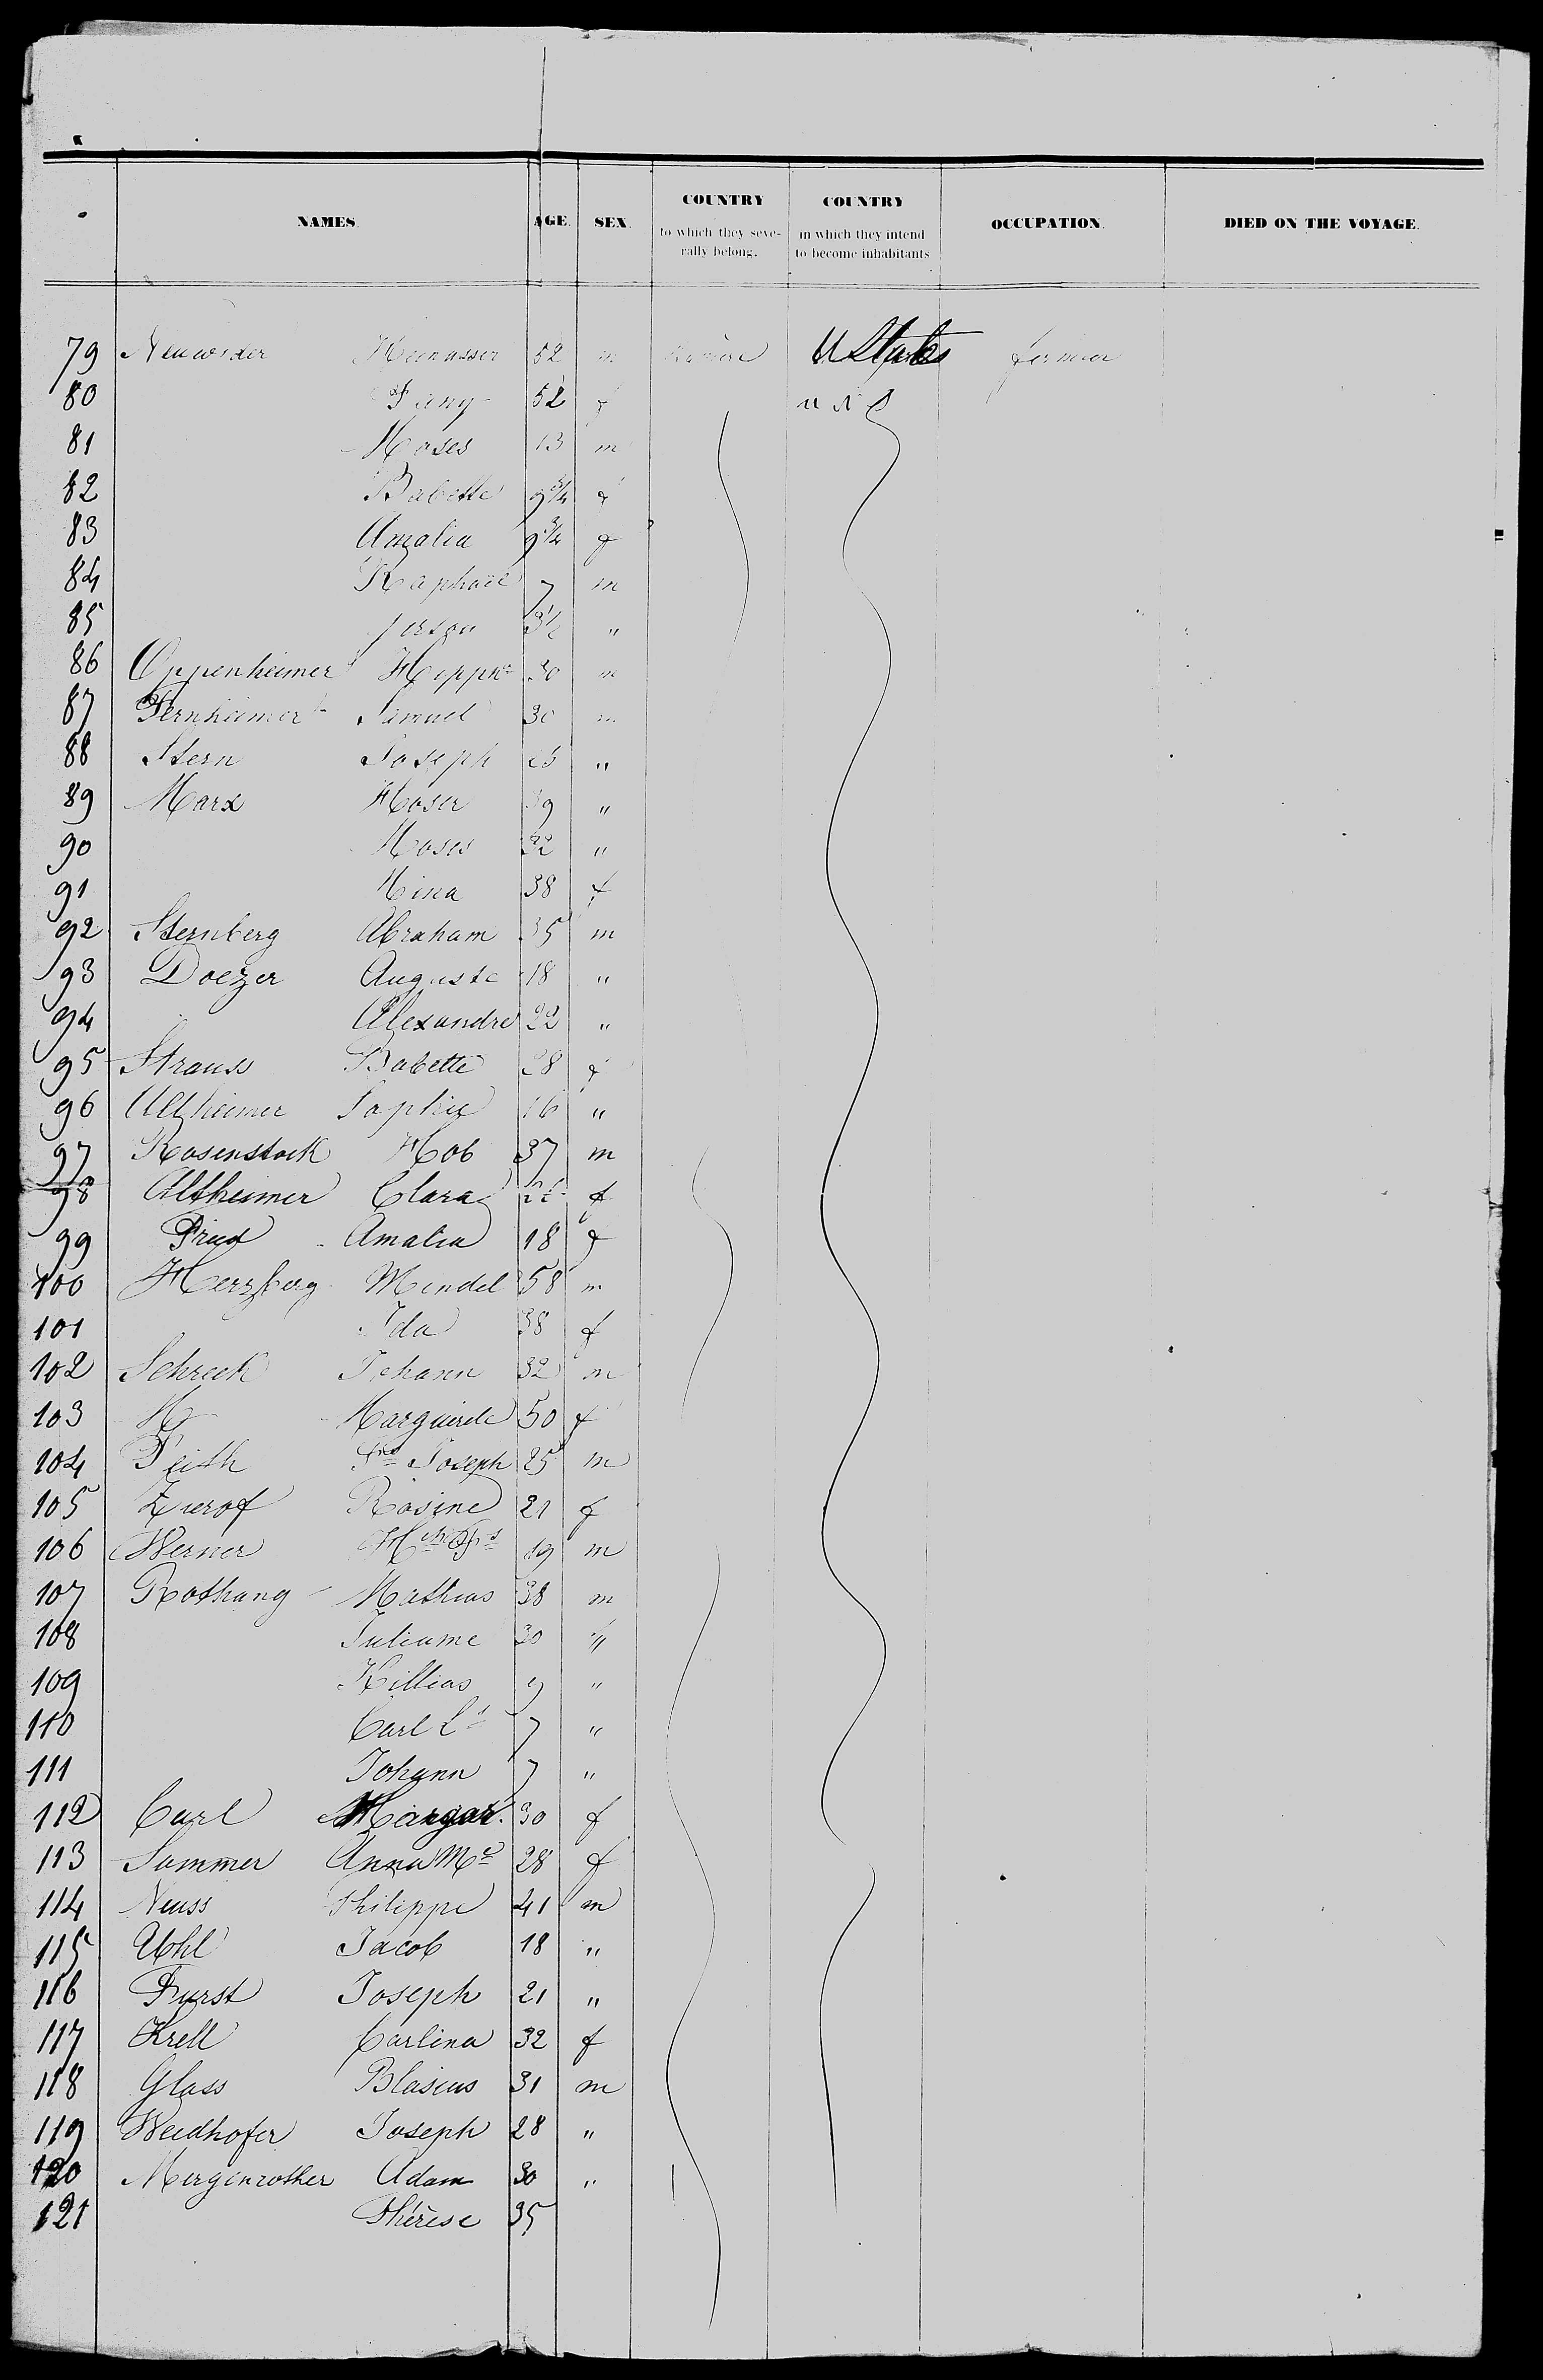 NAMES. AGE. SEX. COUNTRY to which they severally belong. COUNTRY in which they intend to become inhabitants OCCUPATION. DIED ON THE VOYAGE.
79 52 m U States farmer
80 Fany 52 f
81 Moses 13 m
82 Babette 9 3/4 f
83 Amalia 9 3/4 f
84 Raphael 7 m
85 3 1/2 "
86 Oppenheimer 30 m
87 Fernheimer Samuel 30 m
88 Stern Joseph "
89 Marx Moser 39 "
90 Moses 32 "
91 Mina 38 f
92 Sternberg Abraham 35 m
93 Doezer Auguste 18 "
94 Alexandre 22 "
95 Strauss Babette 28 f
96 Altheimer Sophie 16 "
97 Rosenstock Hob 37 m
98 Altheimer Clara f
99 Amalia 18 f
100 Herzberg Mendel 58 m
101 Ida 38 f
102 Schreck Johann 32 m
103 Marguerite 50 f
104 Feith Joseph 25 m
105 Zierof Rosine 21 f
106 Werner 19 m
107 Rothang Mathias 38 m
108 Juliame 30 "
109 Killias 9 "
110 Carl Ls 7 "
111 Johann 7 "
112 Carl Margar. 30 f
113 Sommer Anna Me 28 f
114 Neuss Philippe 41 m
115 Uhl Jacob 18 "
116 Furst Joseph 21 "
117 Krell Carlina 32 f
118 Glass Blasius 31 m
119 Weidhofer Joseph 28 "
120 Mergenrother Adam 30 "
121 Thérese 35